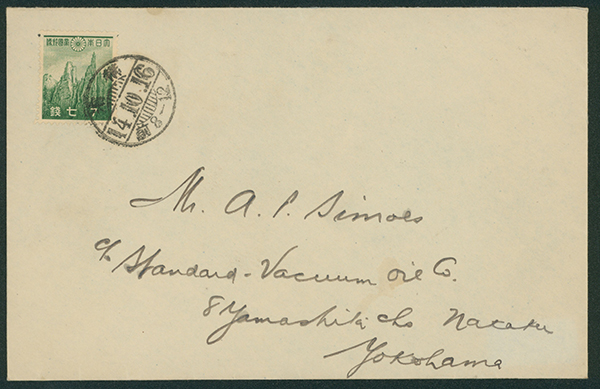 大日本帝國郵便
七錢
14.10.16
前8-12
Mr. A. P. Simoes
c/o Standard-Vacuum Oil Co.
8 Yamashita cho Nakaku
Yokohama